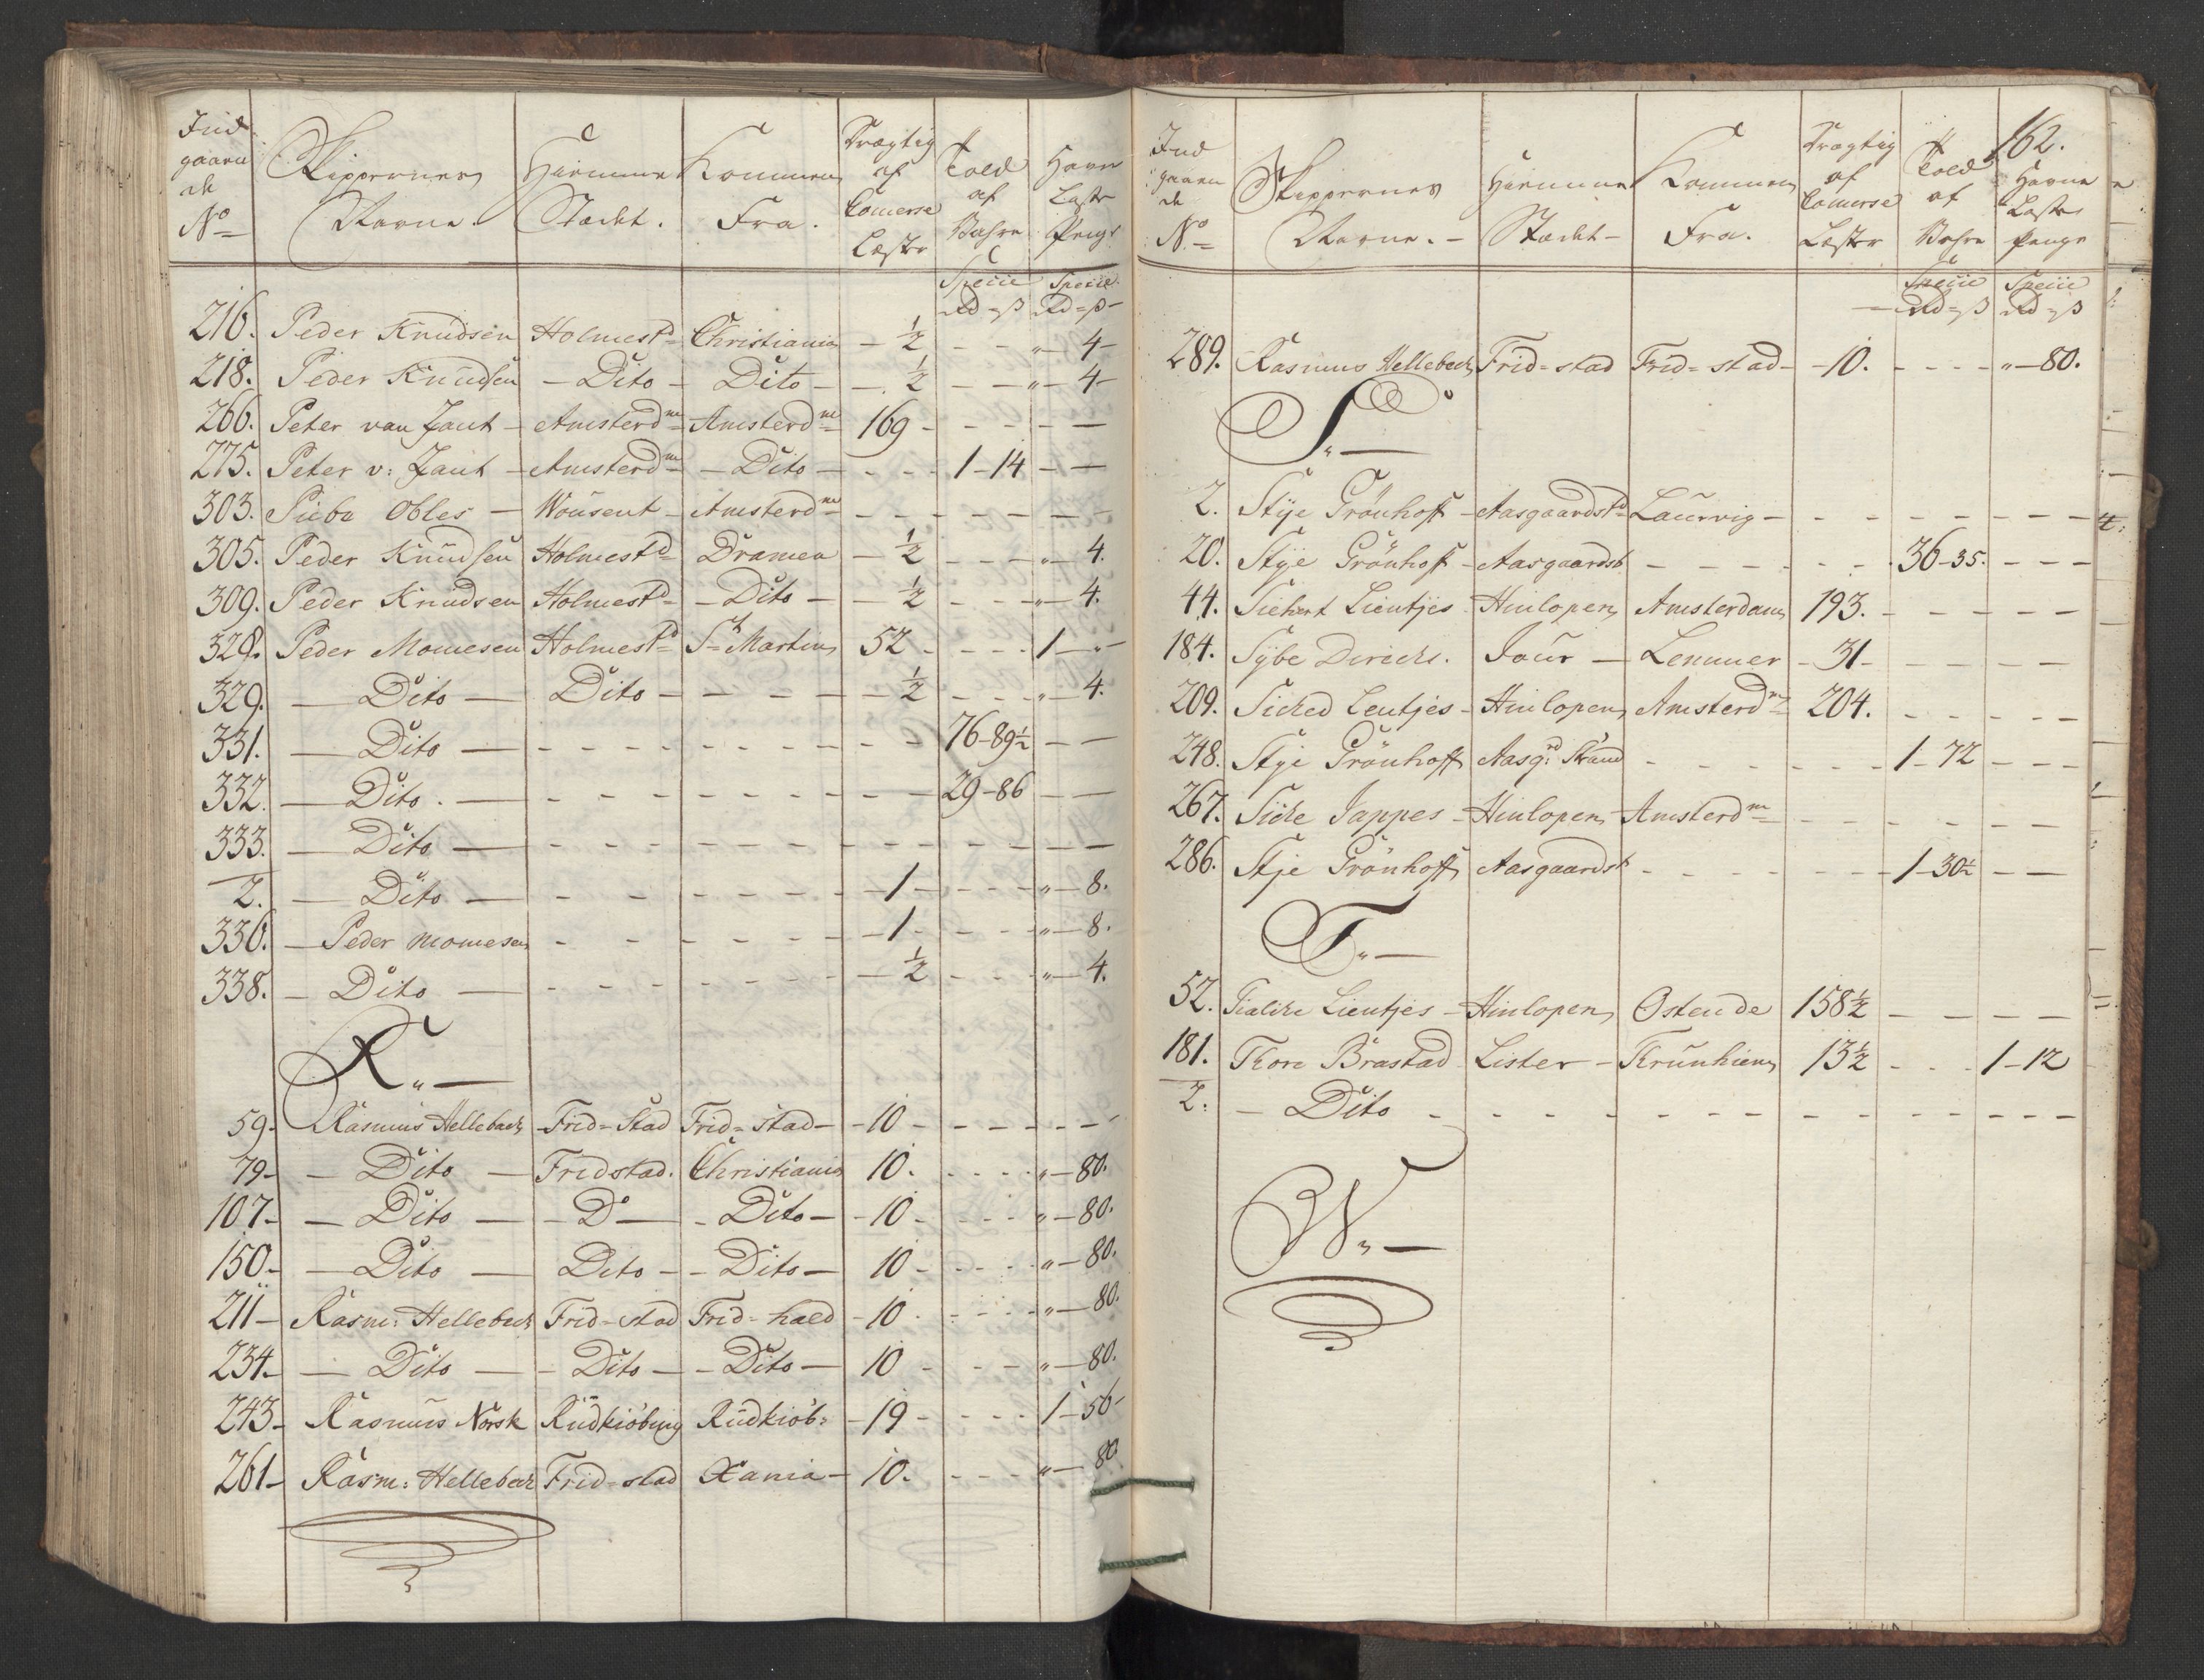 Ind
gaaen
de
No
Skippernes
Navne.
Hiemme
Stædt.
Kommen
Fra.
Drægtig
af
Comerse
Læster
Told
af
Vahre
Havne
Laste
Penge
Specie Specie
Rd = ß Rd = ß
216. Peder Knudsen Holmest= Christiania - ½ - - „ - 4 -
218. Peder Knudsen - Dito - Dito - - ½ - - „ - 4 -
266. Peter van Jaut - Amsterdm - Amsterdm 169 - - - - -
275. Peter v: Jaut - Amsterdm - Dito - - - 1 - 14 - -
303. Piebe Obles - Wousent - Amsterdm - - - - -
305. Peder Knudsen Holmestd Dramen - ½ - - - „ - 4.
309. Peder Knudsen Holmestd - Dito - - ½ - - „ - 4.
328. Peder Momesen Holmestd St Martin 52 - - - 1 - „ -
329. - Dito - Dito - - - - ½ - - „ - 4.
331. - Dito - - - - - - 76 - 89½ - -
332. - Dito. - - - - - - 29 - 86 - -
333. - Dito - - - - - - - - -
2. - Dito - - - - - - 1 - - - „ - 8.
336. - Peder Momesen - - - - - 1 - - - „ - 8.
338. - Dito - - - - - - ½ - - „ - 4.
R. „ -
59 - Rasmus Hellebach - Frid=stad Frid=stad - - 10 - - - - -
79 - - Dito - Fridstad. Christiania 10. - - - „ - 80.
107 - - Dito - - Do - - Dito - - 10 - - - - „ - 80.
150 - - Dito - Dito - - Dito - 10 - - - - „ - 80.
211 - Rasm: Hellebach Frid=stad Frid=hald - 10 - - - - „ - 80.
234. - Dito - - Dito - - Dito - 10 - - - „ - 80.
243 - Rasmus Norsk Rudkiöbing Rudkiöb: - 19 - - - - 1 - 56 -
261 - Rasm: Hellebach Frid=stad Xania - 10. - - - „ - 80.
162.
Ind
gaaen
de
No
Skippernes
Navne. -
Hiemme
Stædt -
Kommen
Fra.
Drægtig
af
Comerse
Læster
Told
af
Vahre
Havne
Laste
Penge
Specie Specie
Rd = ß Rd = ß
289. Rasmus Hellebach Frid=stad Frid=stad - - 10. - - - - „ - 80.
S. „ -
2. Stye Grönhoff - Aasgaardstd Laurvig - - - - - - -
20. Stye Grönhoff - Aasgaardst - - - - - 36 - 35. - - -
44. Siehert Lientjes Hinlopen Amsterdam 193. - - - - -
184. Sybe Dirichs. Jour - Lemmer - 31 - - - - -
209. Siched Leutjes - Hinlopen Amsterdm 204. - - - - -
248. Stye Grönhoff Aasgd Strand - - - - - - 1 - 72 - - -
267. Siche Jappes - Hinlopen - Amsterdm - - - - - - -
286. Stje Grönhoff Aasgaardst - - - - - - 1 - 30½ - -
T. „ -
52. Tialche Lientjes - Hinlopen Ostende 158½ - - - -
181. Thore Brastad Lister - Krunhien 13½ - - - 1 - 12
2. - Dito - - - - - - - - - - -
W. „ -